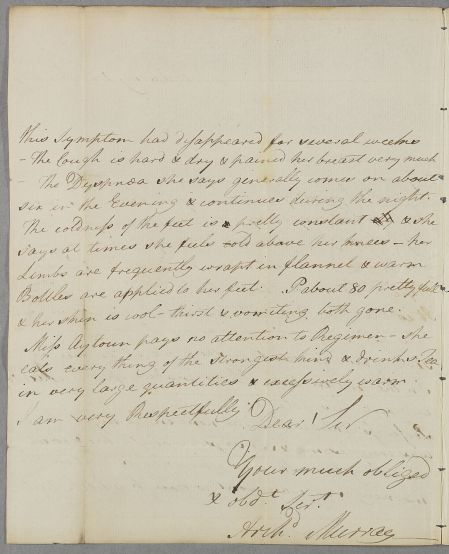 This Symptom had disappeared for several weeks
- The Cough is hard & dry & pained her breast very much
- The Dyspnœa she says generally comes on about
six in the Evening & continues during the night.
The coldness of the feet is pretty constant & she
says at times she feels cold above her knees - her
Limbs are frequently wrapt in flannel & warm
Bottles are applied to her feet. P. about 80 pretty full
& her skin is cool - thirst & vomiting both gone
Miss Aytoun pays no attention to Regimen - she
eats every thing of the Strongest kind & drinks Tea
in very large quantities & excessively warm
I am very Respectfully Dear Sir
Your much obliged
& obdt. Sert.
Archd. Murray